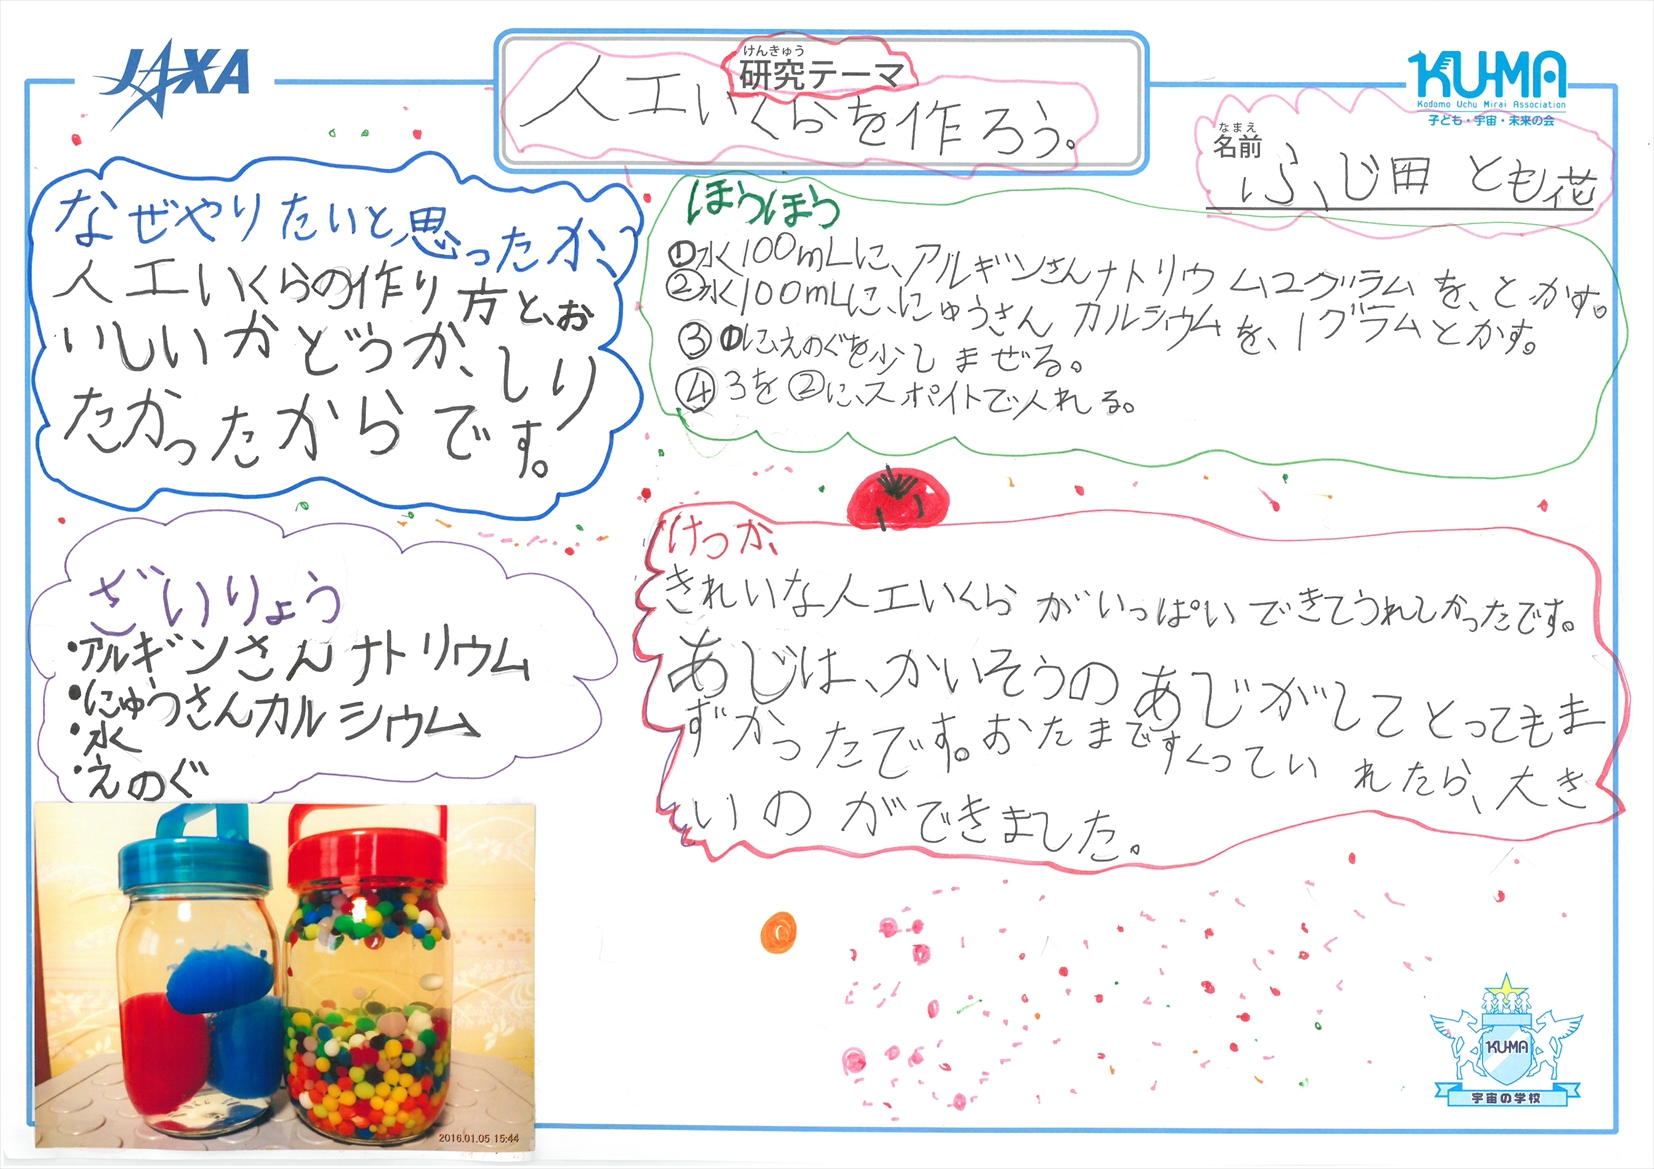 JAXA
けんきゅう
研究テーマ
人工いくらを作ろう。
KU-MA
Kodomo Uchu Mirai Association
子ども・宇宙・未来の会
なまえ
名前
ふじ田 とも花
なぜやりたいと思ったか、
人工いくらの作り方と、お
いしいかどうか、しり
たかったからです。
ざいりょう
・アルギンさんナトリウム
・にゅうさんカルシウム
・水
・えのぐ
ほうほう
①水100mLに、アルギンさんナトリウムユグラムを、とかす。
②水100mLに、にゅうさんカルシウムを、1グラムとかす。
③①にえのぐを少しまぜる。
④3を②に、スポイトで入れる。
けっか、
きれいな人工いくらがいっぱいできてうれしかったです。
あじは、かいそうのあじがしてとってもま
ずかったです。おたまですくっていれたら、大き
いのができました。
2016.01.05 15:44
KU-MA
宇宙の学校